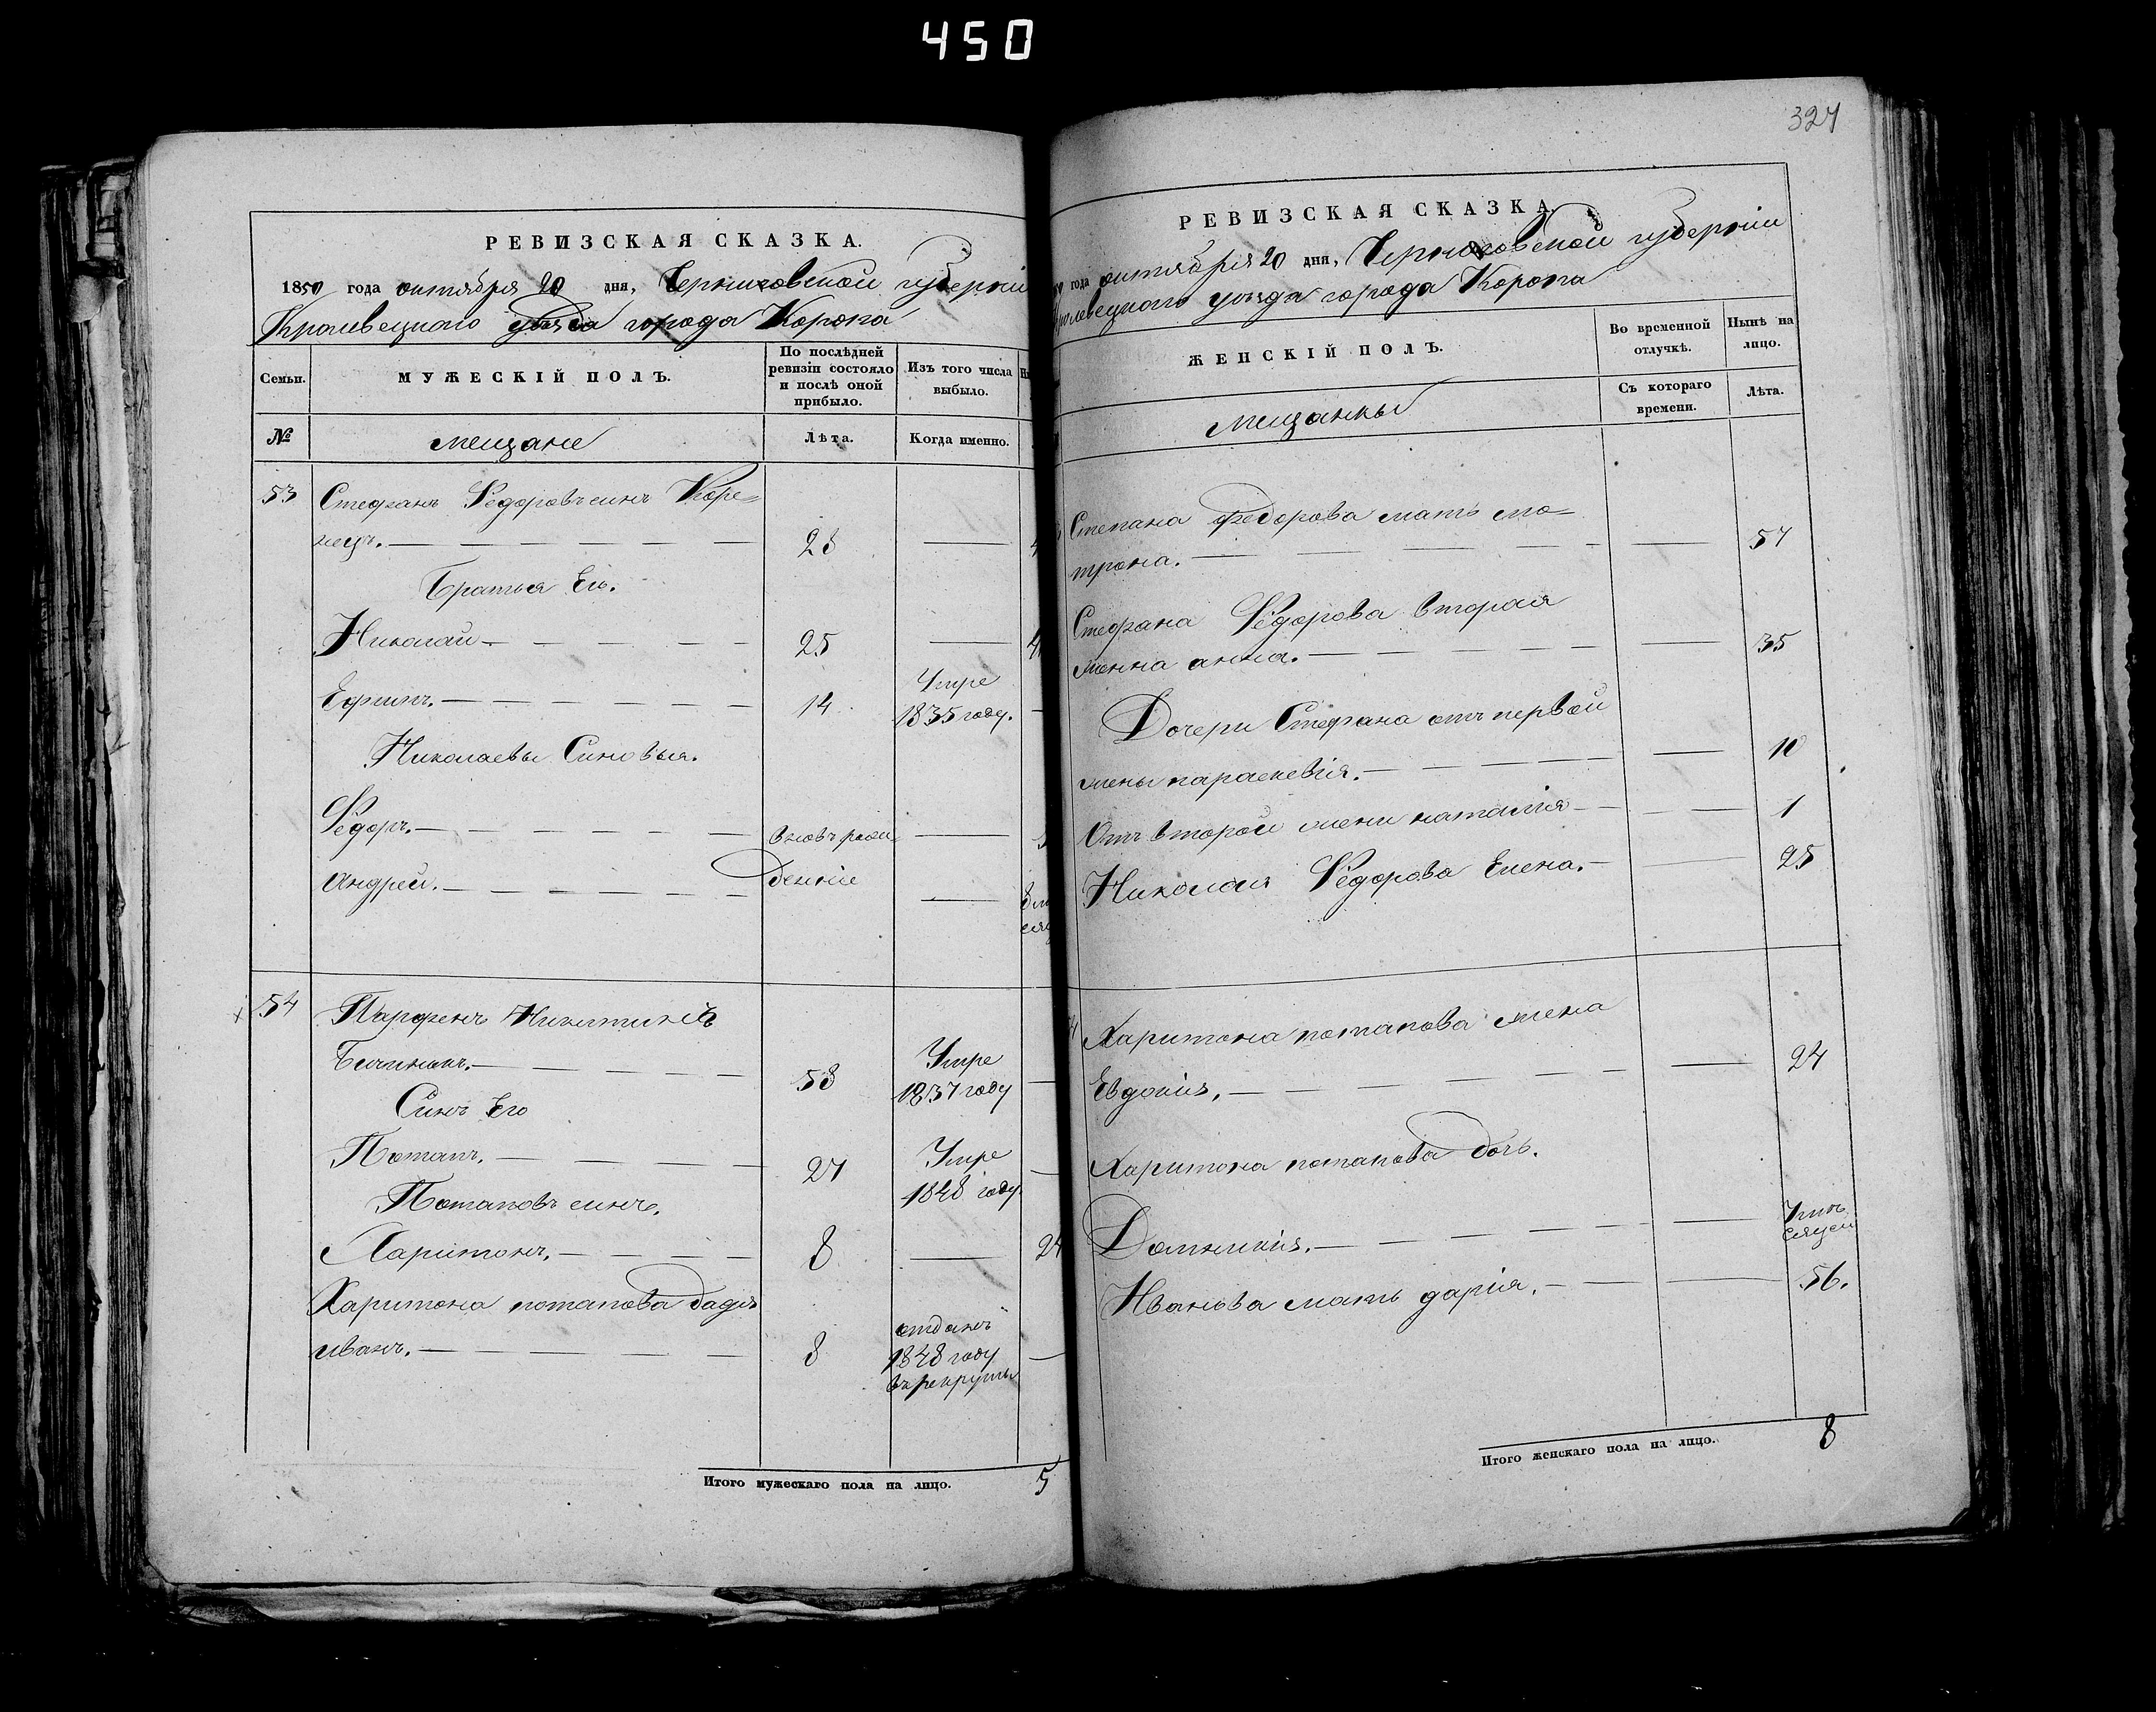 450
РЕВИЗСКАЯ СКАЗКА.
1850 года октября 20 дня, Черниговской губерніи
Кролевецкого уѣзда города Коропа
Семьи.
МУЖЕСКІЙ ПОЛЪ.
По послѣдней ревизіи состояло и послѣ оной прибыло.
Изъ того числа выбыло.
№
мещане
Лѣта.
Когда именно.
53 Стефанъ Федоровъ синъ Коре=
нецъ. 28
Братья Его.
Николай 25
Ефимъ. 14 Умре 1835 году.
Николаевы Синовья.
Федоръ. вновь рож
Андрей. денніе
54 Парфенъ Никитинъ
58 Умре 1837 году
Синъ Его
Потапъ. 27 Умре 1848 году.
Потаповъ синъ.
Харитонъ. 8 24
Харитона потапова дядя
иванъ. 8 отданъ 1848 году въ рекруты
Итого мужескаго пола на лицо. 5
327
РЕВИЗСКАЯ СКАЗКА.
года октября 20 дня, Черниговской губерніи
ролевецкого уѣзда города Коропа
ЖЕНСКІЙ ПОЛЪ.
Во временной отлучкѣ.
Нынѣ на лицо.
мещанки
Съ котораго времени.
Лѣта.
Степана федорова мать мо=
трона. 57
Стефана Федорова вторая
женна анна. 35
Дочери Стефана отъ первой
жены параскевія. 10
Отъ второй жени наталія 1
Николая Федорова Елена. 25
Харитона потапова жена
Евдокія. 24
Харитона потапова дочь.
Домникія.
Иванова мать дарія. 56.
Итого женскаго пола на лицо. 8